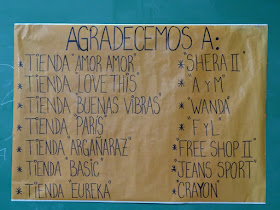 AGRADECEMOS A:
* TIENDA "AMOR AMOR"
* TIENDA "LOVE THIS"
* TIENDA "BUENAS VIBRAS"
* TIENDA "PARIS"
* TIENDA "ARGAÑARAZ"
* TIENDA "BASIC"
* TIENDA "EUREKA"
* "SHERA II"
* "A y M"
* "WANDA"
* "F y L"
* "FREE SHOP II"
* "JEANS SPORT"
* "CRAYON"